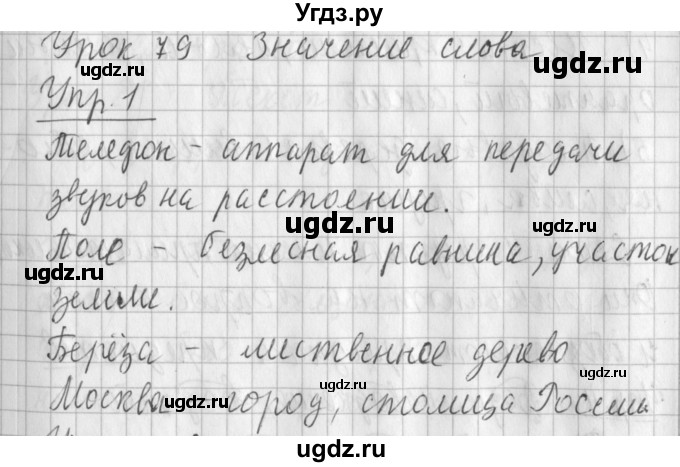 Угдз.ру
Урок 79 Значение слова
ugdz.ru ugdz.ru
Упр. 1
ugdz.ru
Телефон - аппарат для передачи
звуков на расстоянии.
ugdz.ru ugdz.ru
Поле - безлесная равнина, участок
ugdz.ru ugdz.ru
земли.
ugdz.ru
Берёза - лиственное дерево
ugdz.ru ugdz.ru
Москва - город, столица России
ugdz.ru ugdz.ru